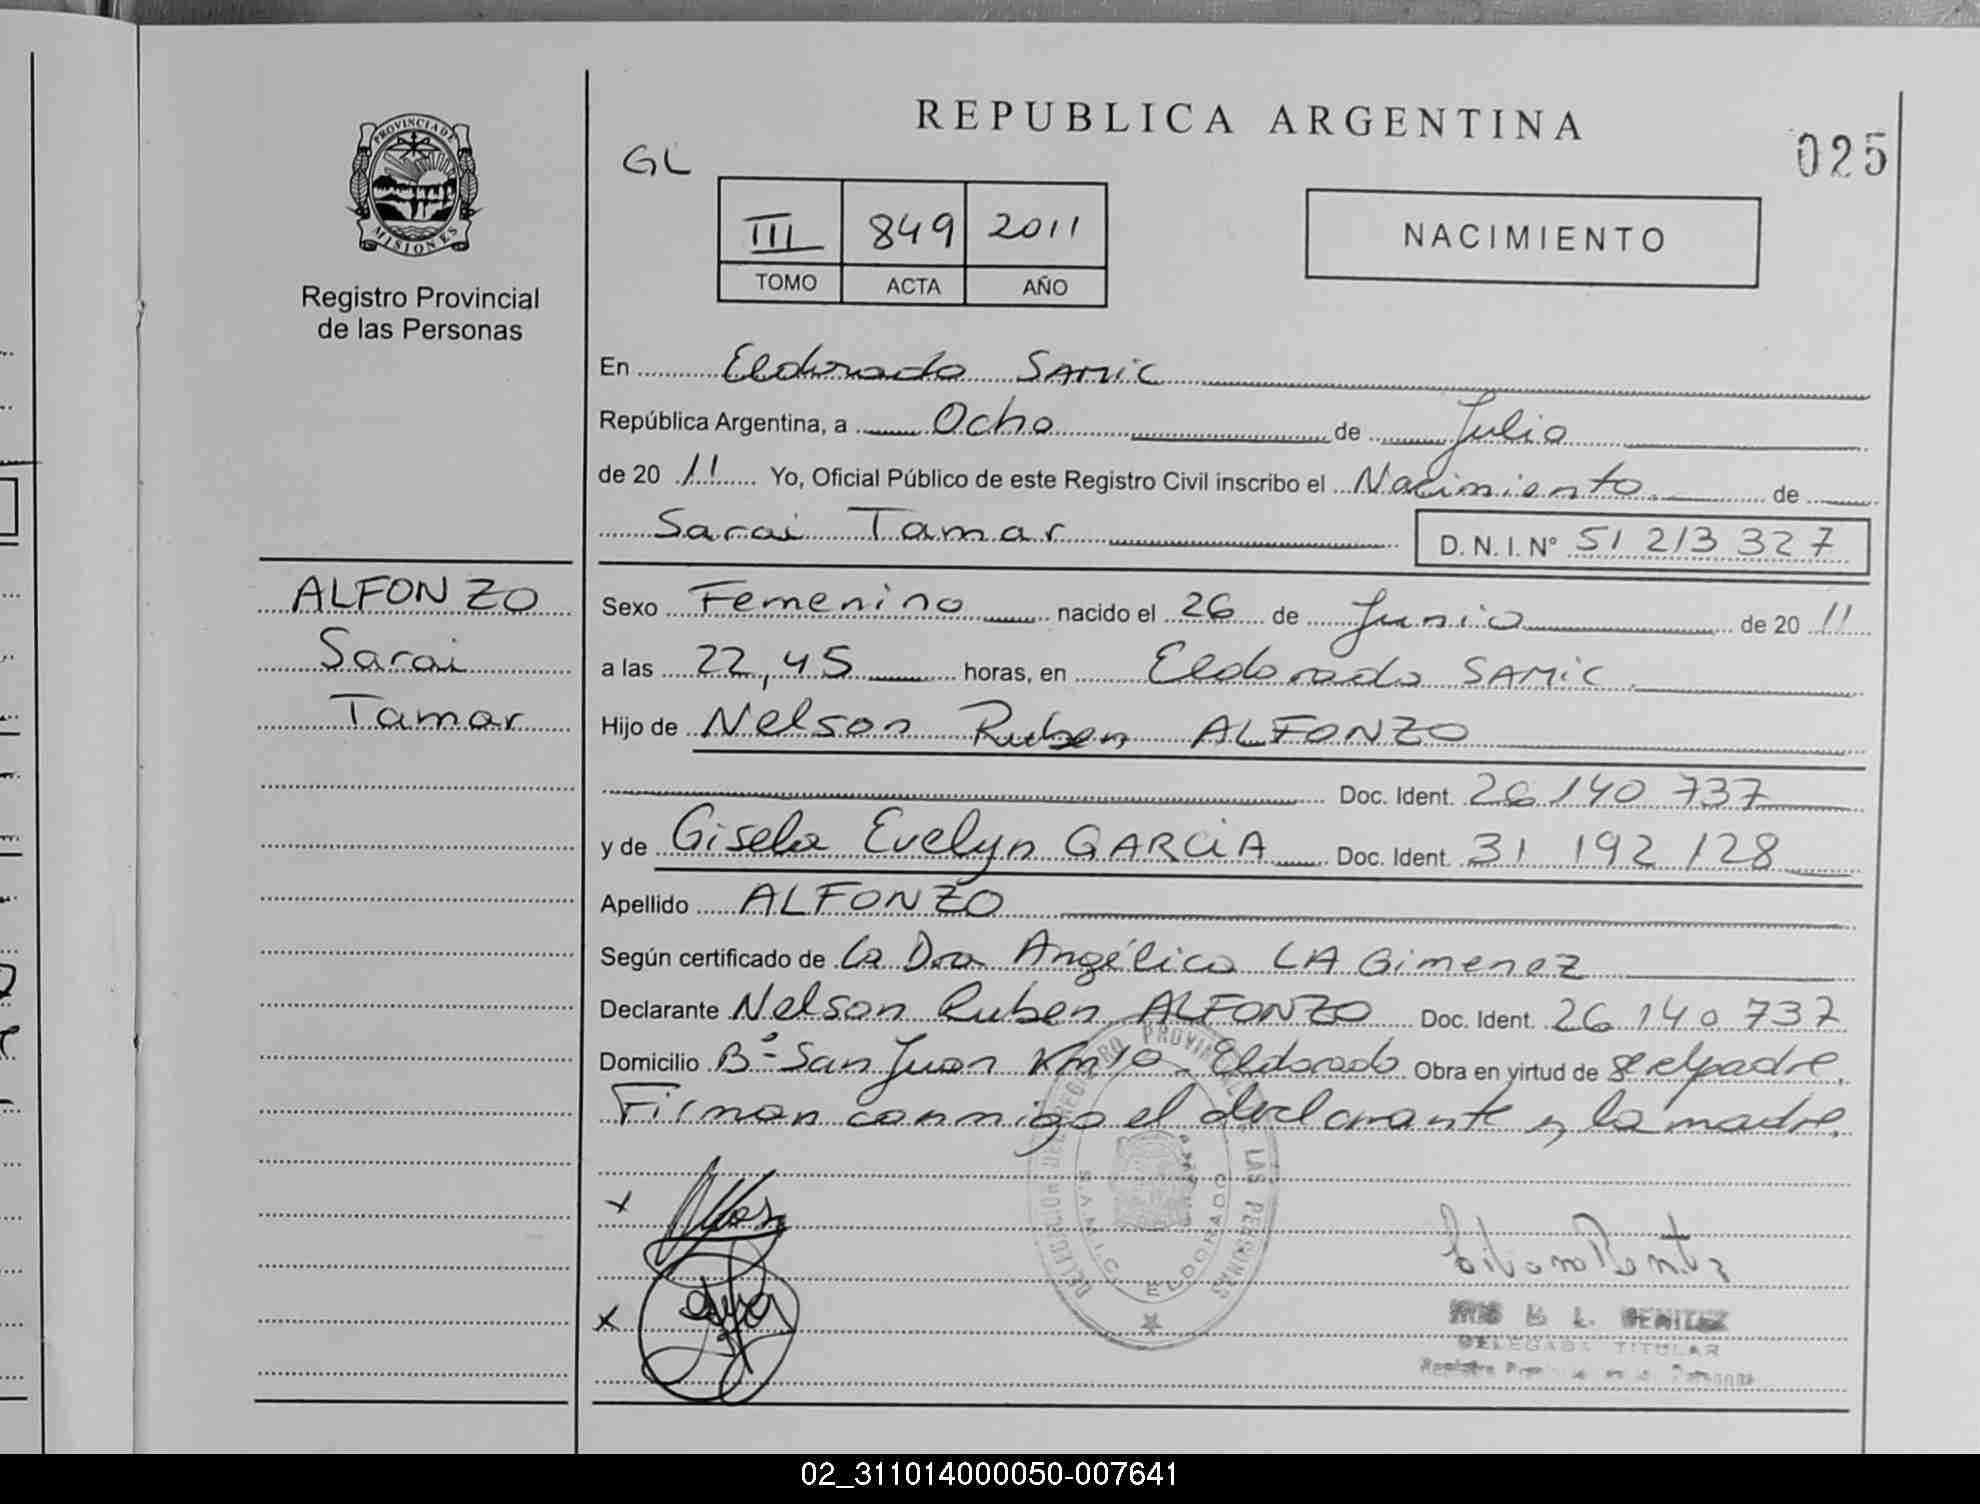 REPUBLICA ARGENTINA
025
GL
III 849 2011
TOMO ACTA AÑO
NACIMIENTO
PROVINCIA DE
MISIONES
Registro Provincial
de las Personas
En Eldorado SAMIC
República Argentina, a Ocho de Julio
de 20 11 Yo, Oficial Público de este Registro Civil inscribo el Nacimiento de
Sarai Tamar D. N. I. Nº 51 213 327
ALFONZO
Sarai
Tamar
Sexo Femenino nacido el 26 de Junio de 20 11
a las 22,45 horas, en Eldorado SAMIC
Hijo de Nelson Ruben ALFONZO
Doc. Ident. 26 140 737
y de Gisela Evelyn GARCIA Doc. Ident. 31 192 128
Apellido ALFONZO
Según certificado de La Dra Angélica LA Gimenez
Declarante Nelson Ruben ALFONZO Doc. Ident. 26 140 737
Domicilio Bº San Juan Km 10 - Eldorado Obra en virtud de el padre.
Firman conmigo el declarante y la madre.
DELEGACION DEL REGISTRO PROVINCIAL DE LAS PERSONAS
S.A.M.I.C. ELDORADO
B. L. BENITEZ
DELEGADA TITULAR
02_311014000050-007641